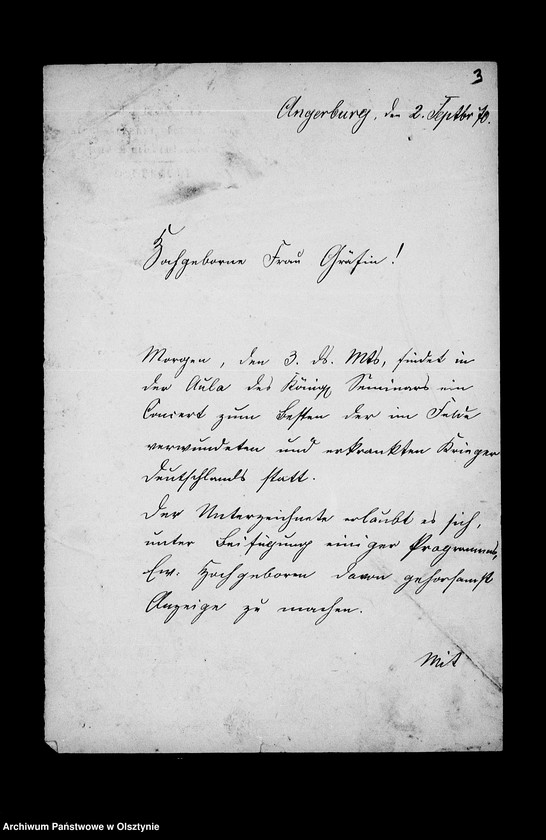 3
Angerburg, den 2. Septbr 70.
Hochgeborne Frau Gräfin!
Morgen, den 3. ds. Mts, findet in
der Aula des Königl Seminars ein
Concert zum Besten der im Felde
verwundeten und erkrankten Krieger
Deutschlands statt.
Der Unterzeichnete erlaubt es sich,
unter Beifügung einiger Programms,
Ew. Hochgeboren davon gehorsamst
Anzeige zu machen.
Mit
Archiwum Państwowe w Olsztynie